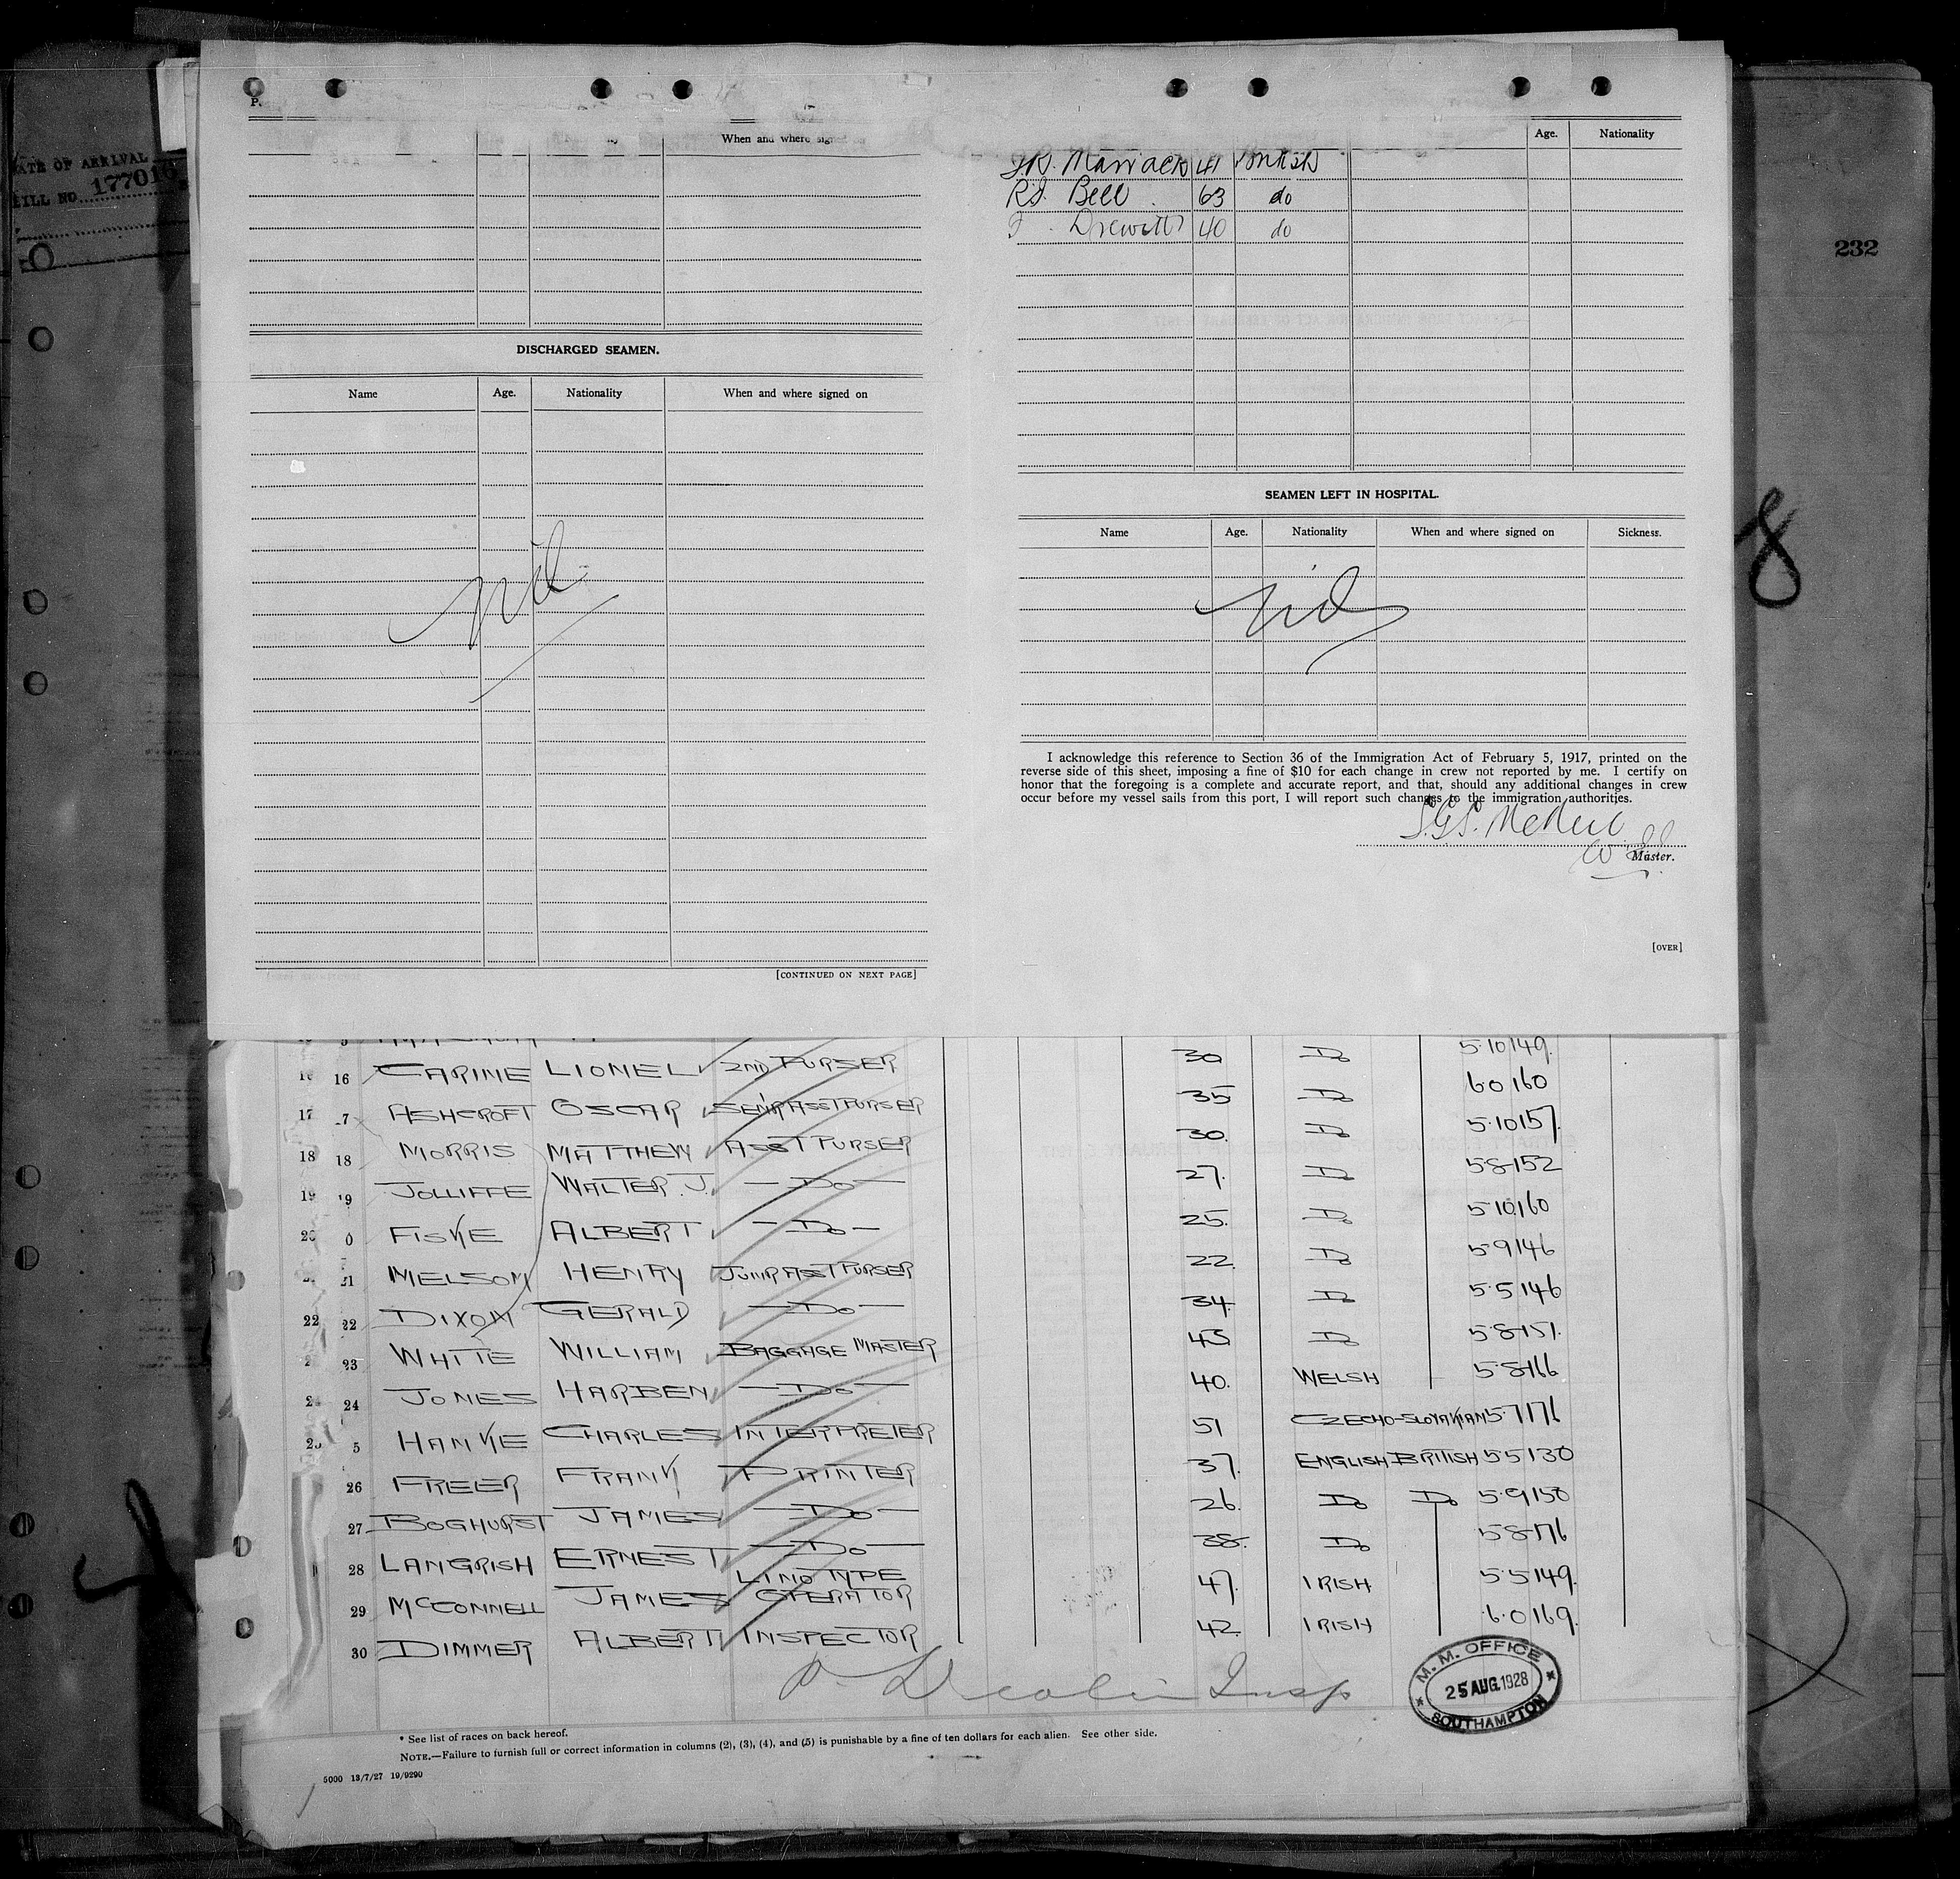 DATE OF ARRIVAL
BILL NO. 177016
232
8
P.
When and where signed
DISCHARGED SEAMEN.
Name Age. Nationality When and where signed on
nil
[CONTINUED ON NEXT PAGE]
Age. Nationality
41 British
R.S. Bell 63 do
Drewitt 40 do
SEAMEN LEFT IN HOSPITAL.
Name Age. Nationality When and where signed on Sickness.
nil
I acknowledge this reference to Section 36 of the Immigration Act of February 5, 1917, printed on the
reverse side of this sheet, imposing a fine of $10 for each change in crew not reported by me. I certify on
honor that the foregoing is a complete and accurate report, and that, should any additional changes in crew
occur before my vessel sails from this port, I will report such changes to the immigration authorities.
S.G.S. McNeil
Master.
[OVER]
16 16 CARINE LIONEL 2ND PURSER 30 Do 5·10 149.
17 7 ASHCROFT OSCAR SENR ASST PURSER 35 Do 6 0 160
18 18 MORRIS MATTHEW ASST PURSER 30. Do 5·10 157.
19 19 JOLLIFFE WALTER. J. — Do — 27. Do 5·8 152
20 0 FISKE ALBERT — Do — 25. Do 5·10 160
21 MELSOM HENRY JUNR ASST PURSER 22. Do 5·9 146
22 22 DIXON GERALD — Do — 34. Do 5·5 146
23 WHITE WILLIAM BAGGAGE MASTER 43 Do 5·8 151.
24 JONES HARBEN — Do — 40. WELSH 5·8 166
5 HANKE CHARLES INTERPRETER 51 CZECHO-SLOVAKIAN 5·7 176
26 FREER FRANK PRINTER 37. ENGLISH BRITISH 5 5 130
27 BOGHURST JAMES — Do — 26. Do Do 5·9 150
28 LANGRISH ERNEST — Do — 38. Do 5·8 176
29 McCONNELL JAMES LINOTYPE OPERATOR 47. IRISH 5·5 149.
30 DIMMER ALBERT INSPECTOR 42. IRISH 6·0 169.
Insp
M. M. OFFICE
25 AUG. 1928
SOUTHAMPTON
* See list of races on back hereof.
NOTE.—Failure to furnish full or correct information in columns (2), (3), (4), and (5) is punishable by a fine of ten dollars for each alien. See other side.
5000 13/7/27 19/9290